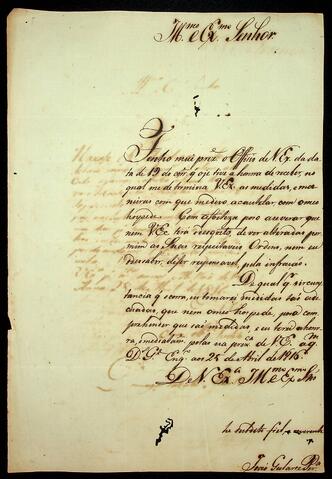 Illmo e Exmo Senhor
Tenho mui prez o Officio de V Ex. da da
ta de 19 do corr. q oje tive a honra de receber, no
qual me determina V Ex. as medidas, e ma
neiras com que me devo acautelar com o meo
hospede. Com a firmeza posso asseverar que
nem V Ex. terá desgosto, de ver alteradas por
mim as Suas respeitaveis Ordens, nem eu
dissabor, de ser responsavel pela infracção.
De qual q. sircuns
tancia q. ocorra, eu tomarei medidas tão ade
cuadas, que nem o meo hospede, possa com
prehender que são medidas, e eu terei a hon
ra, immediatam. pollas na prez. de V. Ex. a q.m
D.s G.e Enq.o aos 25 de Abril de 1816
De V. Ex.a Illmo e Exmo Snr
José Goularte